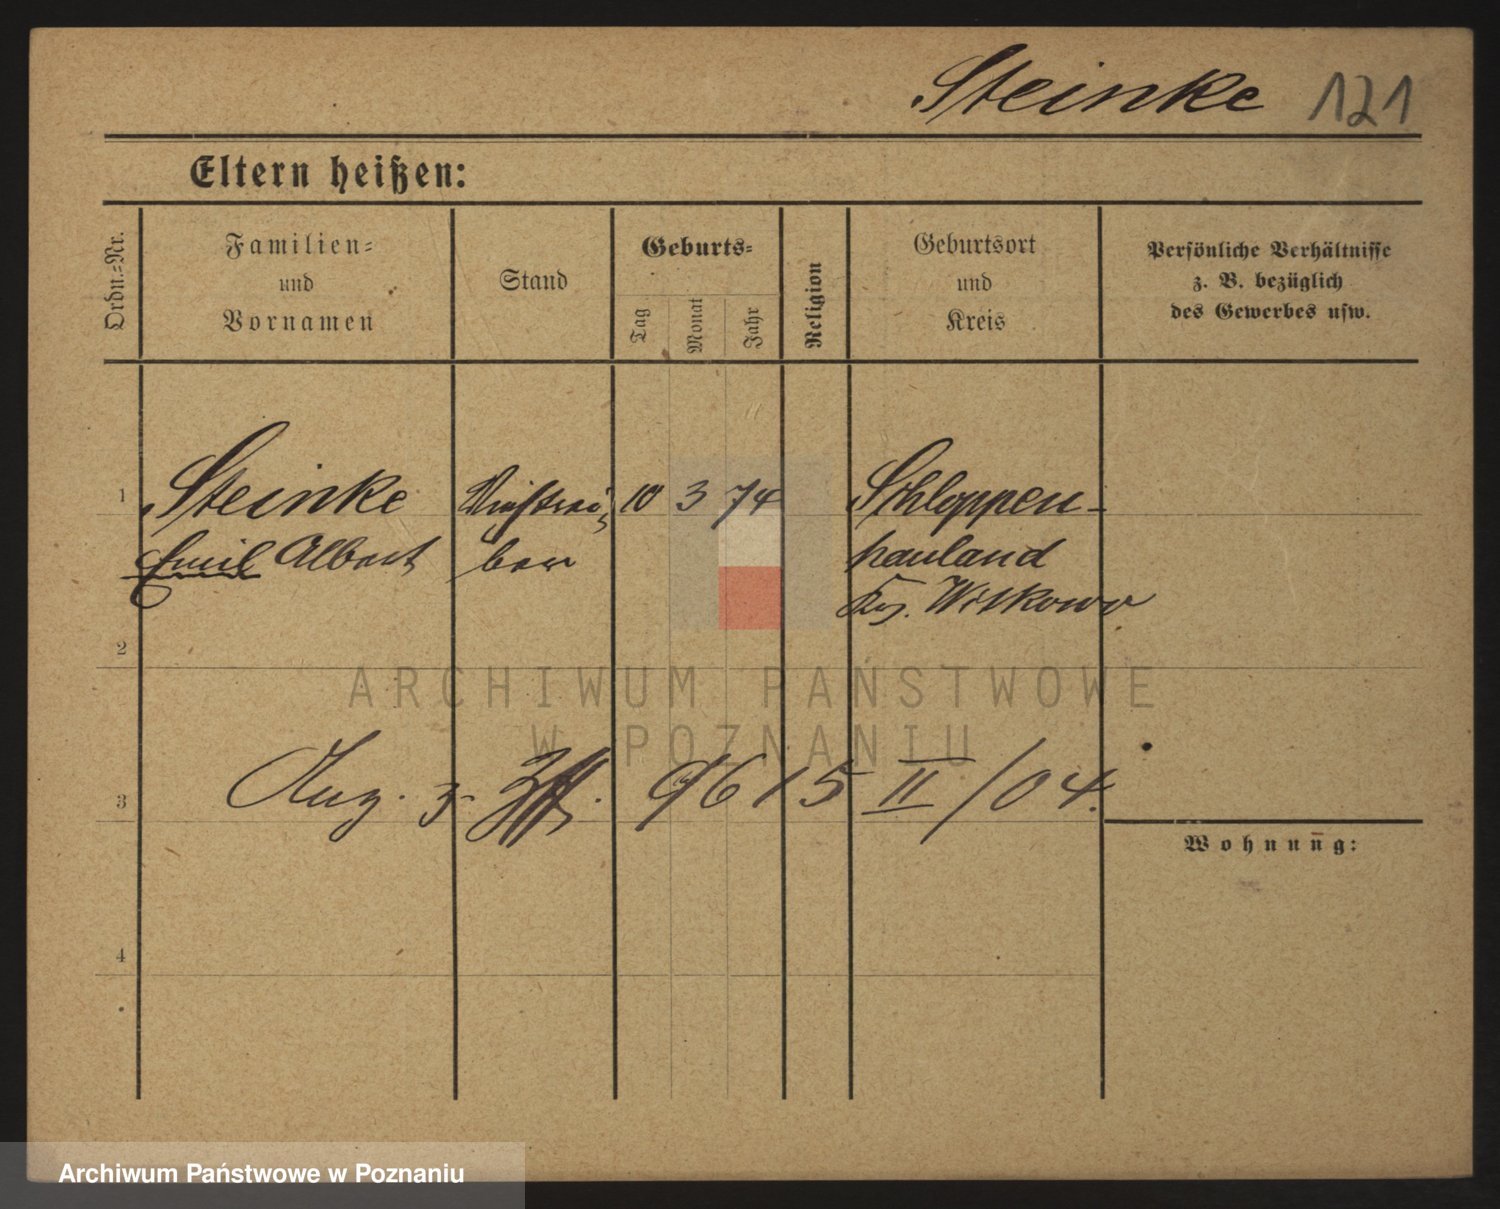 Steinke 121
Eltern heißen:
Ordn.=Nr.
Familien=
und
Vornamen
Stand
Geburts=
Tag
Monat
Jahr
Religion
Geburtsort
und
Kreis
Persönliche Verhältnisse
z. B. bezüglich
des Gewerbes usw.
1 Steinke 10 3 74 Schloppen-
Emil Albert hauland
Witkowo
2
3 9615 II/04.
Wohnung:
4
ARCHIWUM PAŃSTWOWE
W POZNANIU
Archiwum Państwowe w Poznaniu